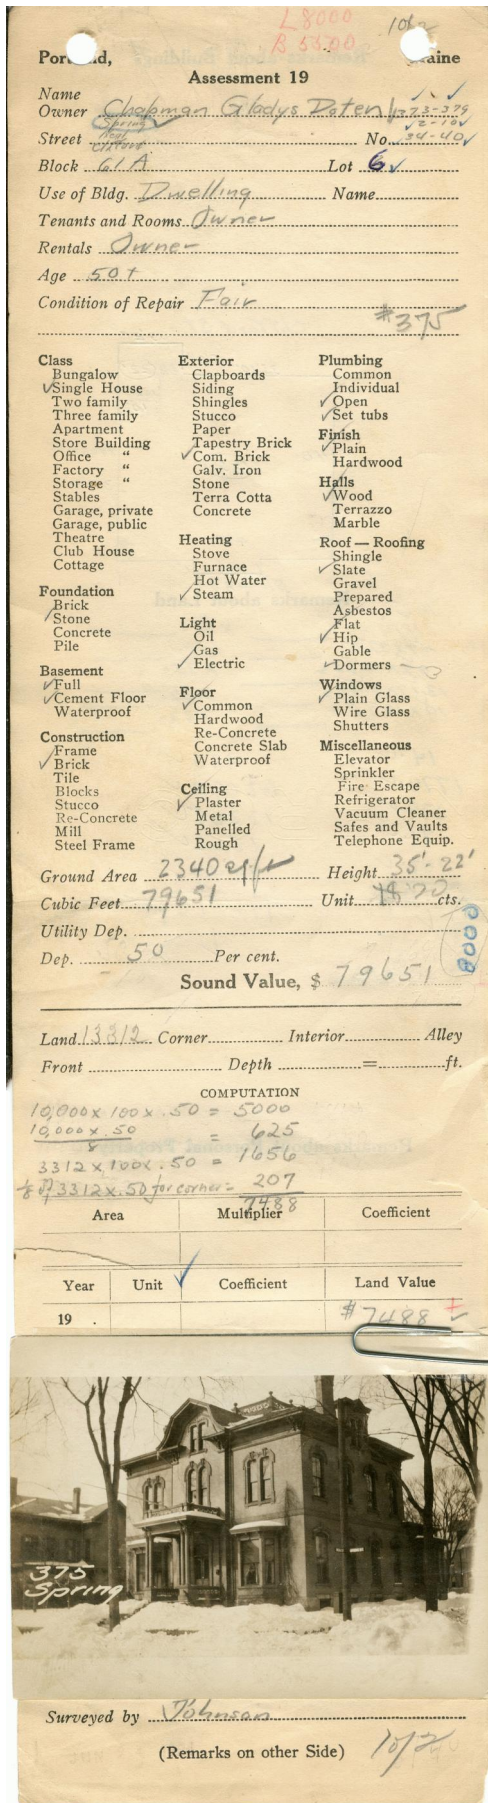 L 8000
B 5500
1 of 2
Portland, Maine
Assessment 19
Name
Owner Chapman Gladys Doten 373-379
Spring 2-10
Street Neal No. 34-40
Clifford
Block 61A Lot 6
Use of Bldg. Dwelling Name
Tenants and Rooms Owner
Rentals Owner
Age 50+
Condition of Repair Fair
#375
Class
Bungalow
Single House
Two family
Three family
Apartment
Store Building
Office "
Factory "
Storage "
Stables
Garage, private
Garage, public
Theatre
Club House
Cottage
Foundation
Brick
Stone
Concrete
Pile
Basement
Full
Cement Floor
Waterproof
Construction
Frame
Brick
Tile
Blocks
Stucco
Re-Concrete
Mill
Steel Frame
Exterior
Clapboards
Siding
Shingles
Stucco
Paper
Tapestry Brick
Com. Brick
Galv. Iron
Stone
Terra Cotta
Concrete
Heating
Stove
Furnace
Hot Water
Steam
Light
Oil
Gas
Electric
Floor
Common
Hardwood
Re-Concrete
Concrete Slab
Waterproof
Ceiling
Plaster
Metal
Panelled
Rough
Plumbing
Common
Individual
Open
Set tubs
Finish
Plain
Hardwood
Halls
Wood
Terrazzo
Marble
Roof — Roofing
Shingle
Slate
Gravel
Prepared
Asbestos
Flat
Hip
Gable
Dormers — 3
Windows
Plain Glass
Wire Glass
Shutters
Miscellaneous
Elevator
Sprinkler
Fire Escape
Refrigerator
Vacuum Cleaner
Safes and Vaults
Telephone Equip.
Ground Area 2340 sq ft Height 35'-22'
Cubic Feet 79651 Unit 20 cts.
Utility Dep.
8000
Dep. 50 Per cent.
Sound Value, $ 79651
Land 13312 Corner Interior Alley
Front Depth = ft.
COMPUTATION
10,000 x 100 x .50 = 5000
10,000 x .50 = 625
8
3312 x 100 x .50 = 1656
1/8 of 3312 x .50 for corner = 207
7488
Area Multiplier Coefficient
Year Unit Coefficient Land Value
19 . #7488 +
375
Spring
Surveyed by Johnson
(Remarks on other Side) 1 of 2